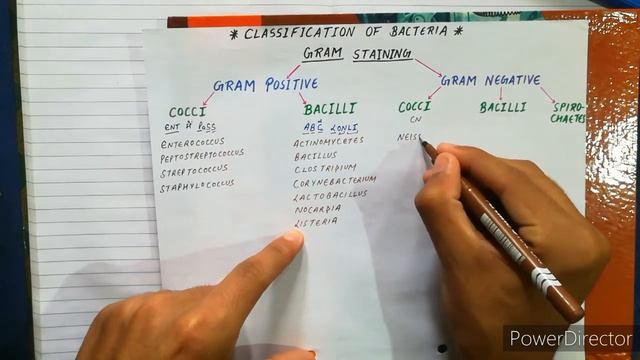 * CLASSIFICATION OF BACTERIA *
GRAM STAINING
GRAM POSITIVE
GRAM NEGATIVE
COCCI
BACILLI
COCCI
BACILLI
SPIRO-
CHAETES
ENT PeSS
ABC LONLI
CN
ENTEROCOCCUS
PEPTOSTREPTOCOCCUS
STREPTOCOCCUS
STAPHYLOCOCCUS
ACTINOMYCETES
BACILLUS
CLOSTRIDIUM
CORYNEBACTERIUM
LACTOBACILLUS
NOCARDIA
LISTERIA
NEISS
PowerDirector